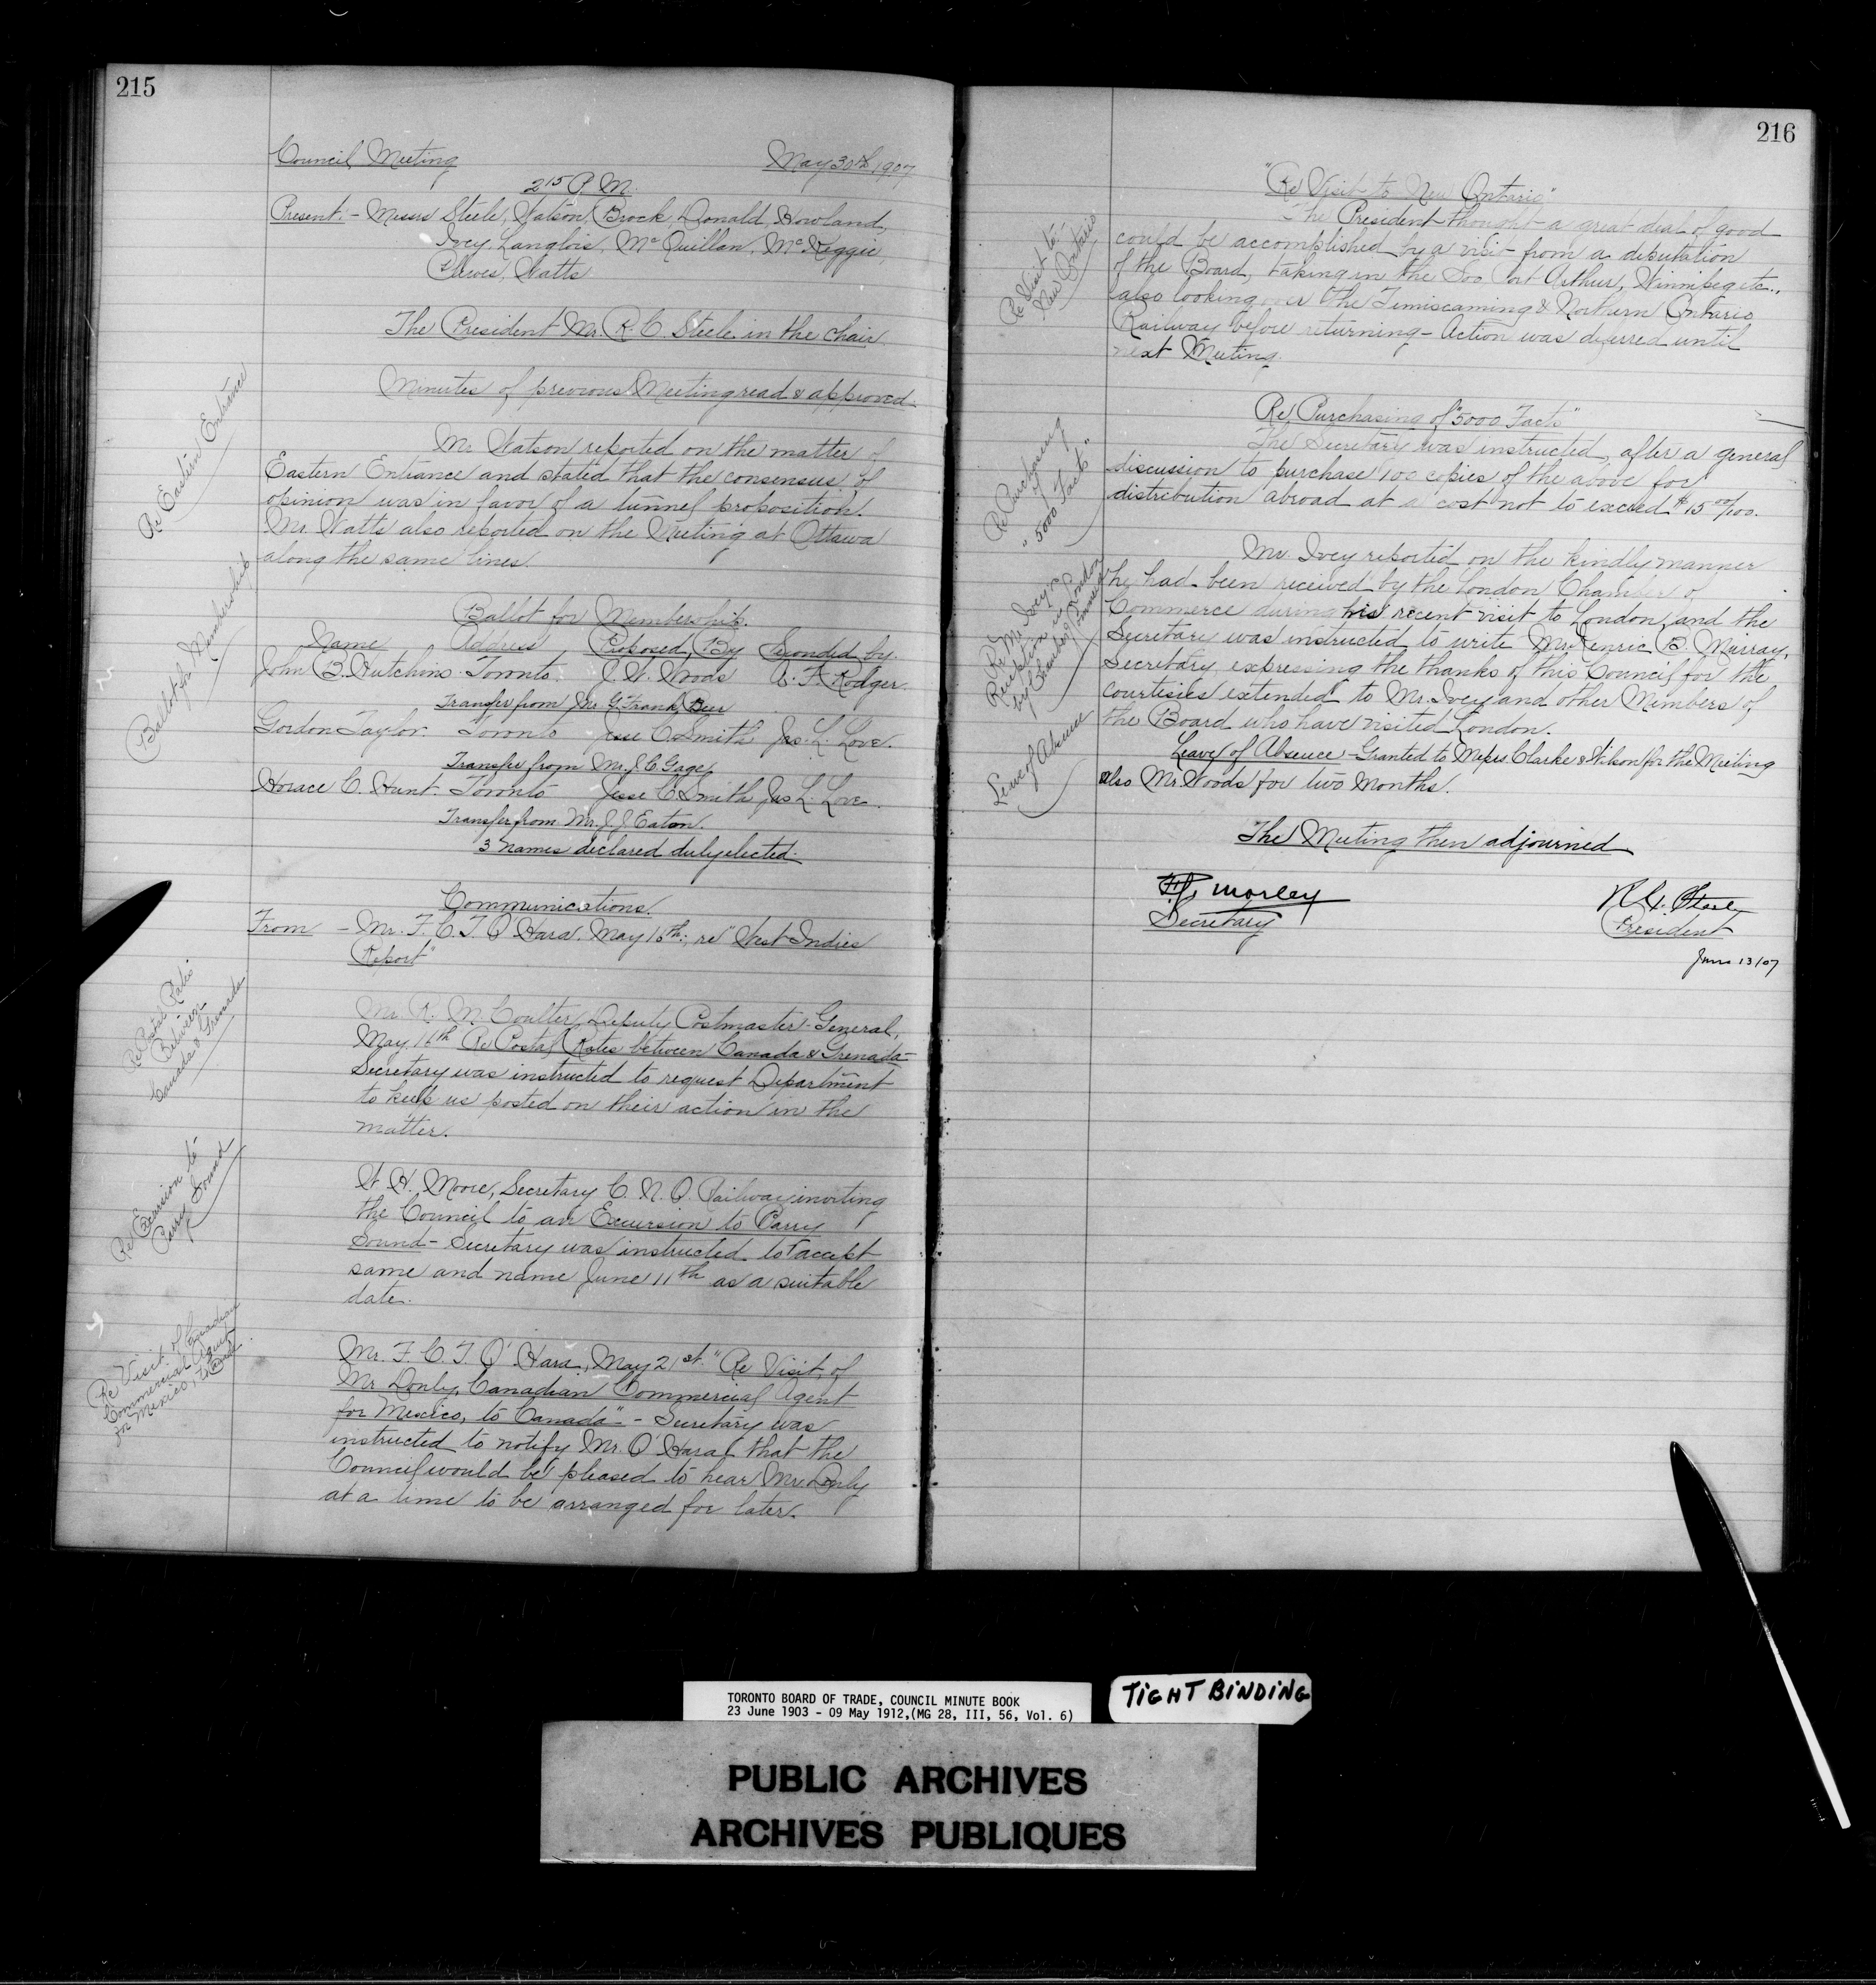 215
Council Meeting May 30th 1907
2 15 P. M.
Present:- Messrs Steele, Watson, Brock, Donald, Howland,
Ivey, Langlois, McQuillan, McKeggie,
Watts
The President Mr. R. C. Steele in the chair.
Minutes of previous Meeting read & approved.
Re Eastern Entrance
Mr. Watson reported on the matter of
Eastern Entrance and stated that the consensus of
opinion was in favor of a tunnel proposition.
Mr. Watts also reported on the Meeting at Ottawa
along the same lines.
Ballot for Membership
Ballot for Membership.
Name Address Proposed By Seconded by
John B. Hutchins. Toronto. J. W. Woods A. F. Rodger.
Transfer from Mr. G. Frank Beer
Gordon Taylor. Toronto Jesse C. Smith Jas. L. Love.
Transfer from Mr. J. C. Gage
Horace C. Hunt. Toronto Jesse C. Smith Jas L. Love.
Transfer from Mr. J. J. Eaton.
3 names declared duly elected.
Communications.
From - Mr. F. C. T. O'Hara. May 16th; re "West Indies
Report"
Re Postal Rates
Between
Canada & Grenada
Mr. R. M. Coulter, Deputy Postmaster-General,
May 16th Re Postal Rates between Canada & Grenada-
Secretary was instructed to request Department
to keep us posted on their action in the
matter.
Re Excursion to
Parry Sound
W. H. Moore, Secretary C. N. O. Railway inviting
the Council to an Excursion to Parry
Sound - Secretary was instructed to accept
same and name June 11th as a suitable
date.
Re Visit of Canadian
Commercial Agent
for Mexico, to Canada
Mr. F. C. T. O'Hara, May 21st. "Re Visit of
Mr Donly, Canadian Commercial Agent
for Mexico, to Canada" - Secretary was
instructed to notify Mr. O'Hara that the
Council would be pleased to hear Mr. Donly
at a time to be arranged for later.
216
"Re Visit to New Ontario"
Re Visit to
New Ontario
The President thought a great deal of good
could be accomplished by a visit from a deputation
of the Board, taking in the Soo, Port Arthur, Winnipeg etc.,
also looking over the Timiscaming & Northern Ontario
Railway before returning - Action was deferred until
next Meeting.
Re Purchasing of "5000 Facts"
Re Purchasing
of
"5000 Facts"
The Secretary was instructed, after a general
discussion to purchase 100 copies of the above for
distribution abroad at a cost not to exceed $15 00/100.
Re Mr. Ivey's
Reception in London
by Chamber of Commerce
Mr. Ivey reported on the kindly manner
he had been received by the London Chamber of
Commerce during his recent visit to London and the
Secretary was instructed to write Mr. Kenric B. Murray,
Secretary, expressing the thanks of this Council for the
courtesies extended to Mr. Ivey and other Members of
the Board who have visited London.
Leave of Absence
Leave of Absence - Granted to Messrs Clarke & Wilson for the Meeting
also Mr. Woods for two months.
The Meeting then adjourned
F. G. Morley
Secretary
R. C. Steele
President
June 13/07
TORONTO BOARD OF TRADE, COUNCIL MINUTE BOOK
23 June 1903 - 09 May 1912,(MG 28, III, 56, Vol. 6)
TIGHT BINDING
PUBLIC ARCHIVES
ARCHIVES PUBLIQUES